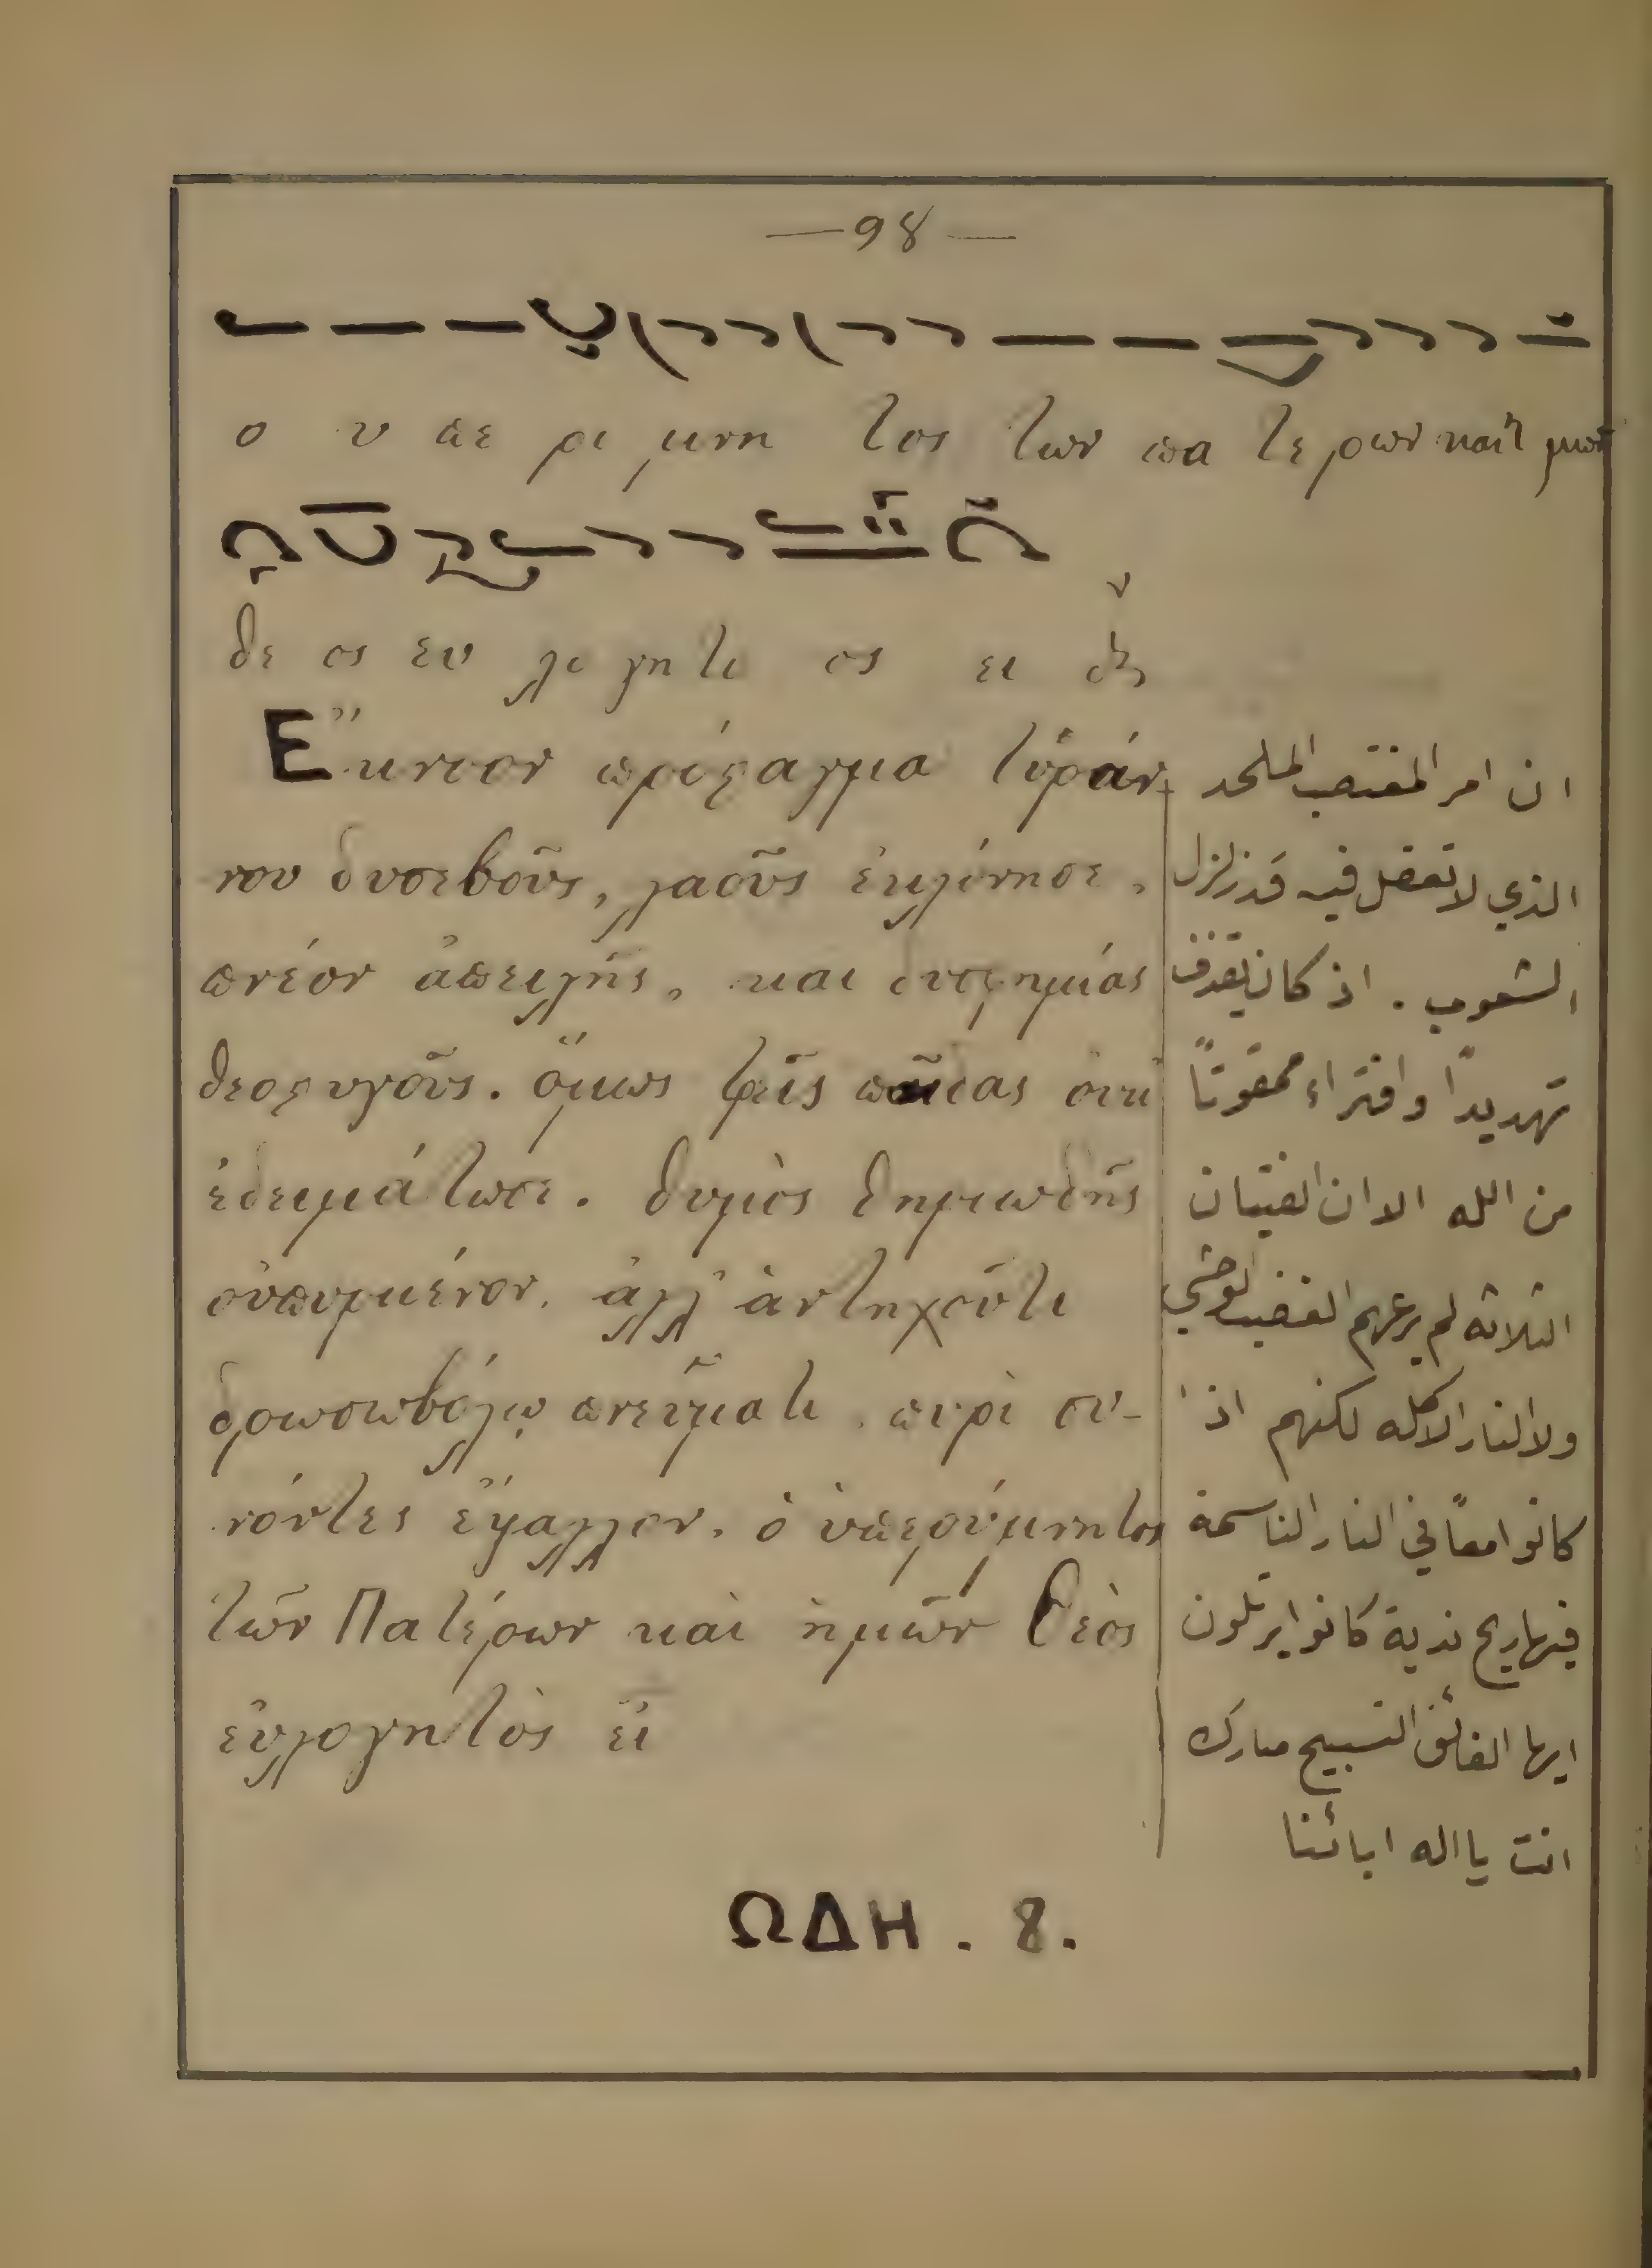 —98—
ο υ πε ρι μνη τος των πα τε ρων και η μων
θε ος ευ λο γη τι ος ει
Ἔκνοον πρόσταγμα τυράν-
νου δυσεβοῦς, λαοῦς ἐκλόνησε,
πνέον ἀπειλῆς, και δυσφημίας
θεοςυγοῦς. ὅμως τρεῖς παῖδας ουκ
ἐδειμάτωσε. θυμὸς θηριωδῆς
οὐπυρμένον, ἀλλ' ἀντηχοῦτι
δροωσωβόλῳ πνεῦματι, πυρὶ συ-
νόντες ἔψαλλον, ὁ ὑπερύμνητος
τῶν Πατέρων καὶ ἡμῶν Θεὸς
εὐλογητὸς εἶ
ان امر المغتصب الملحد
الذي لا تعقل فيه قد زلزل
الشعوب . اذ كان يقذف
تهديدًا وافتراء ممقوتًا
من الله الا ان الفتيان
الثلاثة لم يرعهم الغضب الوحشي
ولا النار الاكله لكنهم اذا
كانوا معًا في النار الناسمة
فيها ريح ندية كانوا يرتلون
ايها الفائق التسبيح مبارك
انت يا اله ابائنا
ΩΔΗ . 8.